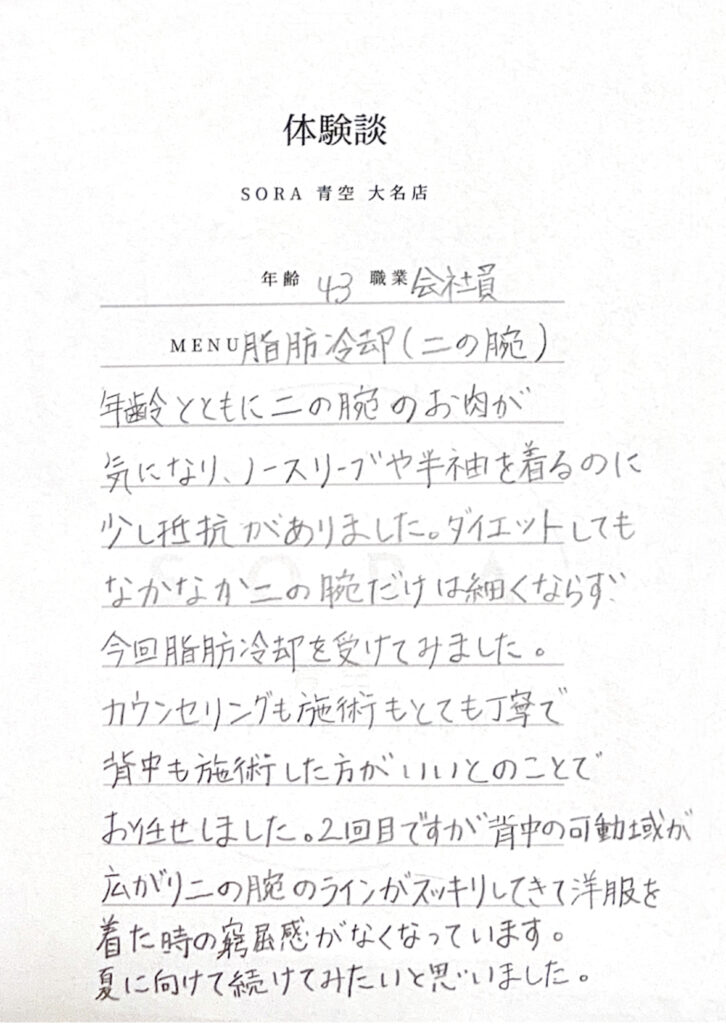 体験談
SORA 青空 大名店
年齢 43 職業 会社員
MENU 脂肪冷却(二の腕)
年齢とともに二の腕のお肉が
気になり、ノースリーブや半袖を着るのに
少し抵抗がありました。ダイエットしても
なかなか二の腕だけは細くならず
今回脂肪冷却を受けてみました。
カウンセリングも施術もとても丁寧で
背中も施術した方がいいとのことで
お任せしました。2回目ですが背中の可動域が
広がり二の腕のラインがスッキリしてきて洋服を
着た時の窮屈感がなくなっています。
夏に向けて続けてみたいと思いました。